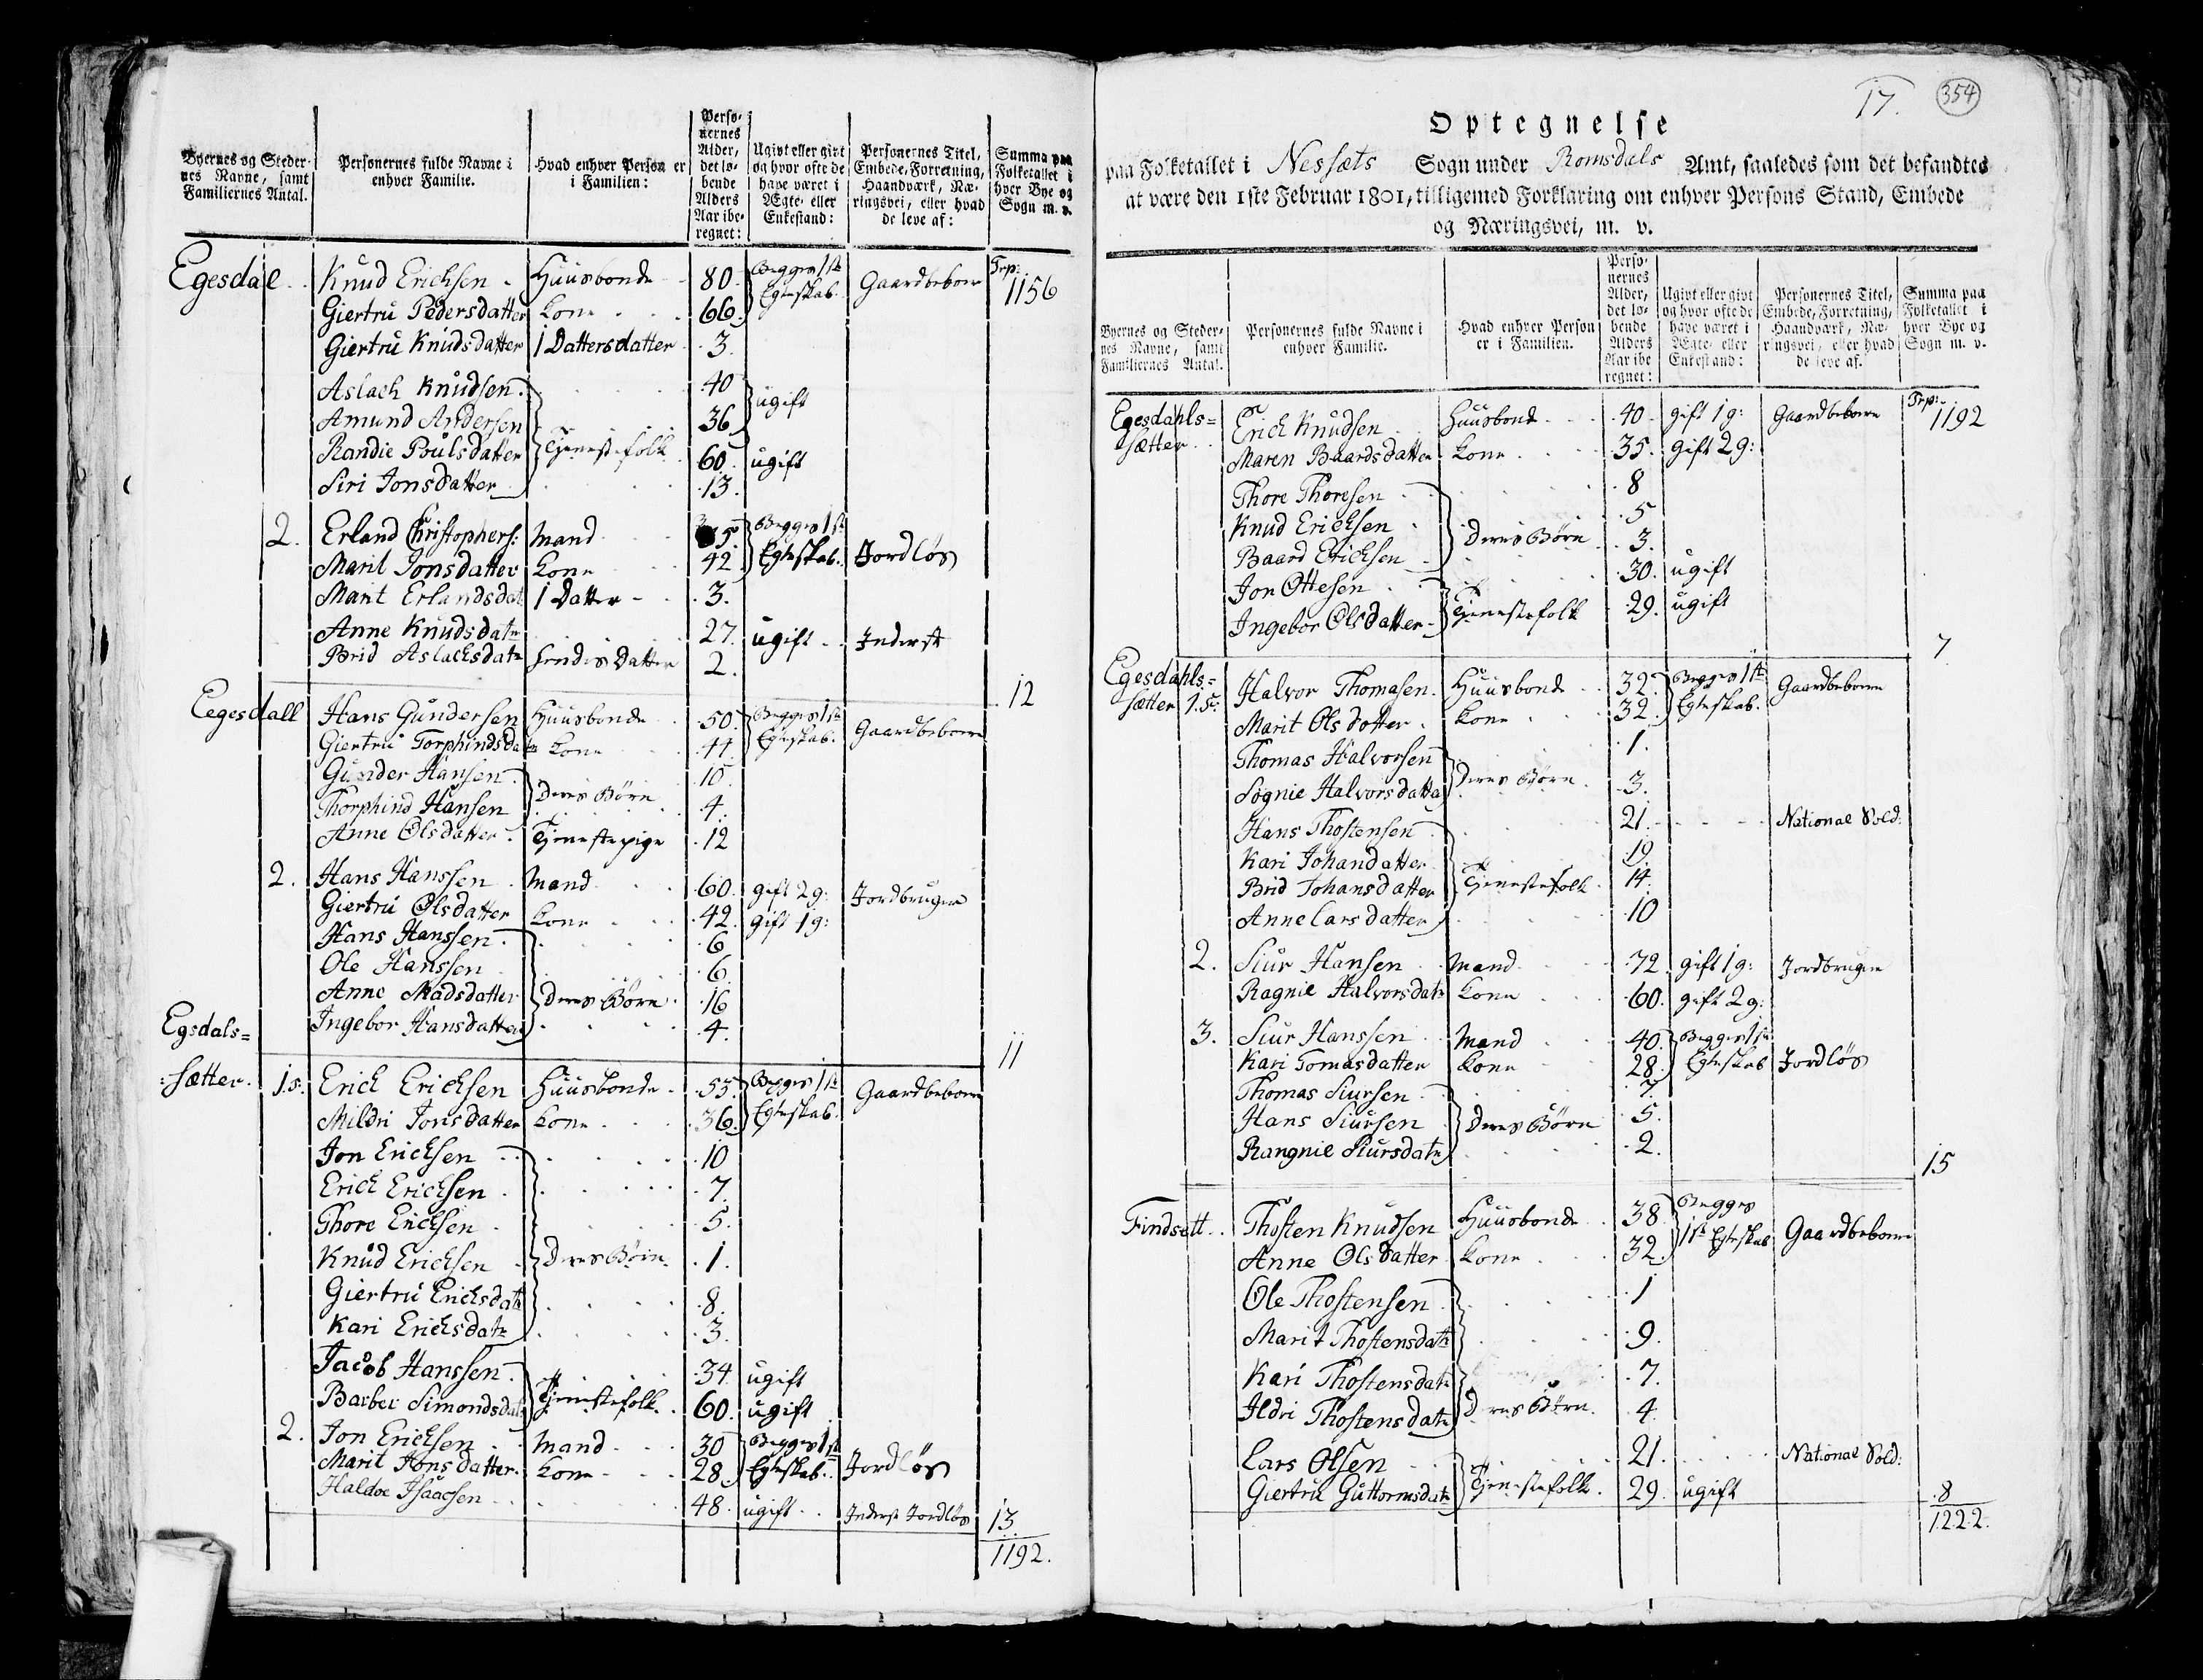 Byernes og Steder-
nes Navne, samt
Familiernes Antal.
Personernes fulde Navne i
enhver Familie.
Hvad enhver Person er
i Familien:
Perso-
nernes
Alder,
det lø-
bende
Alders
Aar ibe-
regnet:
Ugivt eller givt
og hvor ofte de
have været i
Ægte- eller
Enkestand:
Personernes Titel,
Embede, Forretning,
Haandværk, Næ-
ringsvei, eller hvad
de leve af:
Summa paa
Folketallet i
hver Bye og
Sogn m. v.
Trp: 1156
Egesdal Knud Erichsen Huusbonde 80 Begges 1ste Gaardbeboer
Giertru Pedersdatter Kone 66 Egteskab.
Giertru Knudsdatter 1 Dattersdatter 3
Aslach Knudsen 40 ugift
Amund Andersen 36
Randie Poulsdatter Tjenestefolk 60 ugift
Siri Jonsdatter 13
2. Erland Christophers: Mand 35 Begges 1ste
Marit Jonsdatter Kone 42 Egteskab. Jordløs
Marit Erlandsdat 1 Datter 3.
Anne Knudsdatr 27. ugift Inderst
Brid Aslachsdatr hendes Datter 2.
12
Eegesdall Hans Gundersen Huusbonde 50 Begges 1ste Gaardbeboer
Giertru Torphindsdatr Kone 44 Egteskab.
Gunder Hansen 10
Thorphind Hansen Deres Børn 4.
Anne Olsdatter Tjenestepige 12
2. Hans Hanssen Mand 60 gift 2 g: Jordbruger
Giertru Olsdatter Kone 42 gift 1 g:
Hans Hanssen 6
Ole Hanssen 6.
Anne Madsdatter Deres Børn 16
Ingebor Hansdatter 4.
11
Egsdals=
sætter. 1.s. Erich Erichsen Huusbonde 55. Begges 1ste Gaardbeboer
Mildri Jonsdatter Kone 36. Egteskab.
Jon Erichsen 10
Erich Erichsen 7.
Thore Erichsen 5.
Knud Erichsen Deres Børn 1.
Giertru Erichsdatr 8.
Kari Erichsdatr 3.
Jacob Hanssen 34 ugift
Barber Simondsdatr Tjenestefolk 60. ugift
2. Jon Erichsen Mand 30 Begges 1ste
Marit Jonsdatter Kone 28. Egteskab. Jordløs
Haldor Isaacsen 48. ugift Inderst Jordløs 13
1192.
17. 354
Optegnelse
paa Folketallet i Nessæts Sogn under Romsdals Amt, saaledes som det befandtes
at være den 1ste Februar 1801, tilligemed Forklaring om enhver Persons Stand, Embede
og Næringsvei, m. v.
Byernes og Steder-
nes Navne, samt
Familiernes Antal.
Personernes fulde Navne i
enhver Familie.
Hvad enhver Person
er i Familien.
Perso-
nernes
Alder,
det lø-
bende
Alders
Aar ibe
regnet:
Ugivt eller givt
og hvor ofte de
have været i
Ægte- eller
Enkestand:
Personernes Titel,
Embede, Forretning,
Haandværk, Næ-
ringsvei, eller hvad
de leve af.
Summa paa
Folketallet i
hver Bye og
Sogn m. v.
Trp: 1192
Egesdahls= Erich Knudsen Huusbond 40 gift 1 g: Gaardbeboer
sætter Maren Baardsdatter Kone 35. gift 2 g:
Thore Thoresen 8
Knud Erichsen 5
Baard Erichsen Deres Børn 3.
Jon Ottesen 30. ugift
Ingebor Olsdatter Tjenestefolk 29. ugift
7
Egesdahls=
sætter 1.s: Halvor Thomasen. Huusbonde 32. Begges 1ste Gaardbeboer
Marit Olsdotter Kone 32. Egteskab.
Thomas Halvorsen 1.
Sognie Halvorsdatter Deres Børn 3.
Hans Thostensen 21. National Sold:
Kari Johandatter 19
Brid Johansdatter Tjenestefolk 14.
Anne Larsdatter 10
2. Siur Hansen Mand 72 gift 1 g: Jordbruger
Ragnie Halvorsdatr Kone 60. gift 2 g:
3. Siur Hanssen Mand 40. Begges 1ste
Kari Tomasdatter Kone 28. Egteskab Jordløs
Thomas Siursen 7.
Hans Siursen Deres Børn 5.
Rangnie Siursdatr 2.
15
Findsett Thosten Knudsen Huusbonde 38 Begges
Anne Olsdatter Kone 32. 1ste Egteskab Gaardbeboer
Ole Thostensen 1
Marit Thostensdatr 9.
Kari Thostensdatr 7.
Ildri Thostensdatr Deres Børn 4
Lars Olsen 21. National Sold:
Giertru Guttormsdatr Tjenestefolk 29. ugift 8
1222.